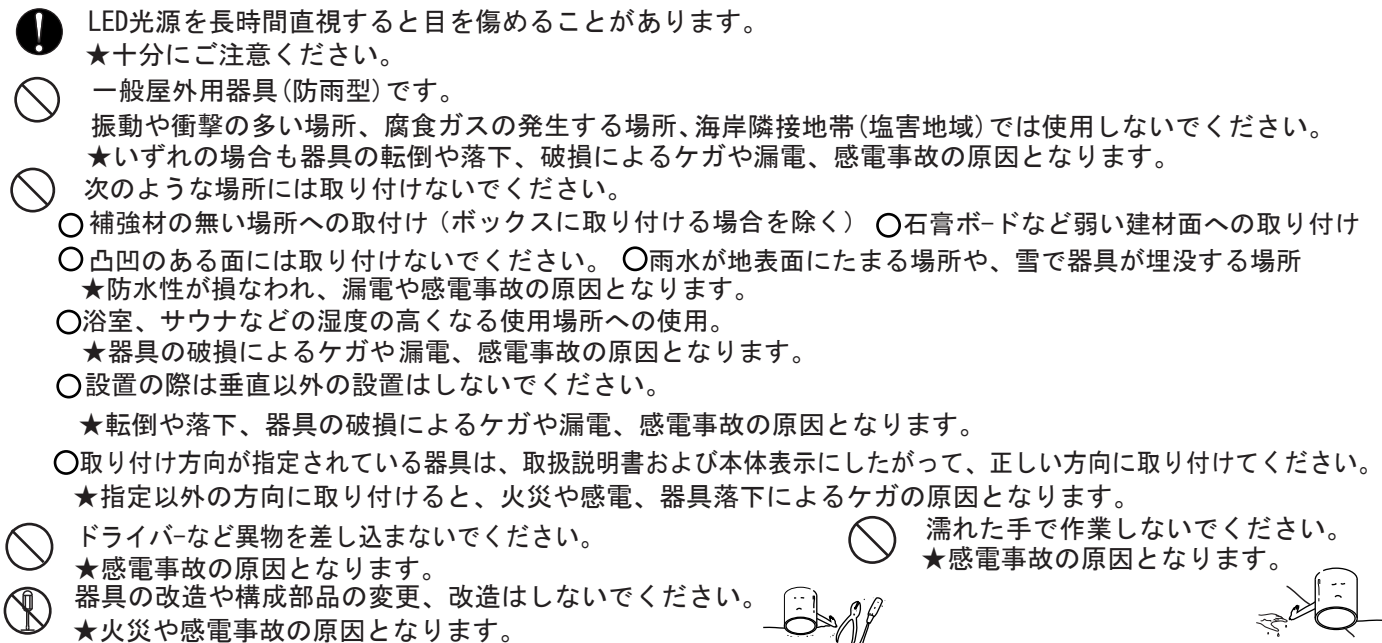 LED光源を長時間直視すると目を傷めることがあります。
★十分にご注意ください。
一般屋外用器具(防雨型)です。
振動や衝撃の多い場所、腐食ガスの発生する場所、海岸隣接地帯(塩害地域)では使用しないでください。
★いずれの場合も器具の転倒や落下、破損によるケガや漏電、感電事故の原因となります。
次のような場所には取り付けないでください。
○補強材の無い場所への取付け(ボックスに取り付ける場合を除く) ○石膏ボ-ドなど弱い建材面への取り付け
○凸凹のある面には取り付けないでください。 ○雨水が地表面にたまる場所や、雪で器具が埋没する場所
★防水性が損なわれ、漏電や感電事故の原因となります。
○浴室、サウナなどの湿度の高くなる使用場所への使用。
★器具の破損によるケガや漏電、感電事故の原因となります。
○設置の際は垂直以外の設置はしないでください。
★転倒や落下、器具の破損によるケガや漏電、感電事故の原因となります。
○取り付け方向が指定されている器具は、取扱説明書および本体表示にしたがって、正しい方向に取り付けてください。
★指定以外の方向に取り付けると、火災や感電、器具落下によるケガの原因となります。
ドライバ-など異物を差し込まないでください。
★感電事故の原因となります。
濡れた手で作業しないでください。
★感電事故の原因となります。
器具の改造や構成部品の変更、改造はしないでください。
★火災や感電事故の原因となります。